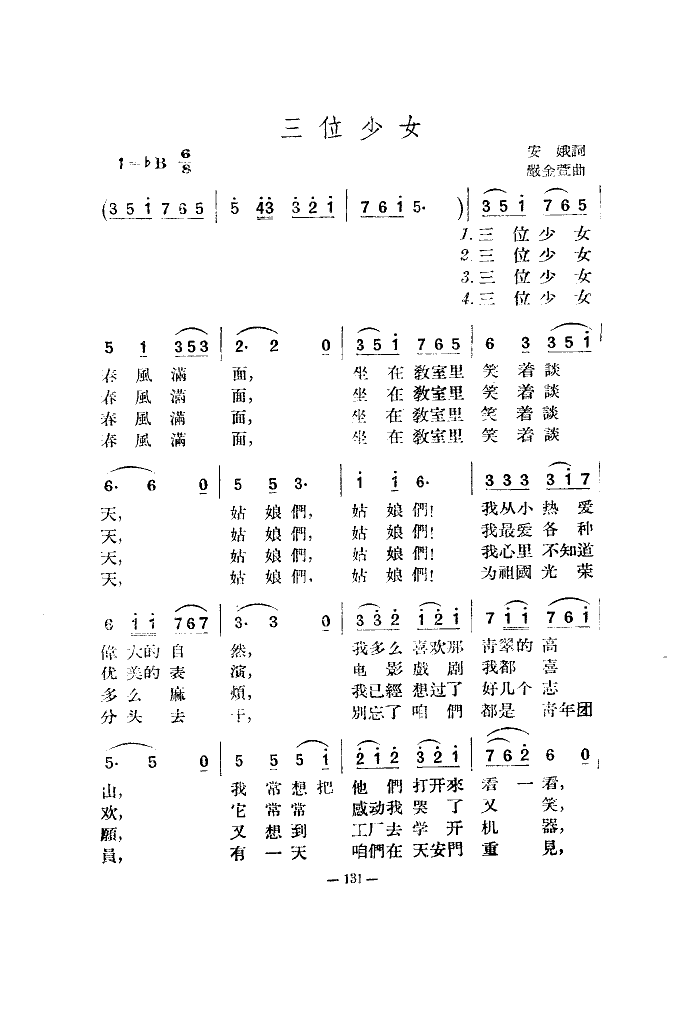 三位少女
1=♭B 6/8
安 娥詞
嚴金萱曲
(3 5 1 7 6 5 | 5 4 3 3 2 1 | 7 6 1 5· ) | 3 5 1 7 6 5
1.三 位 少 女
2.三 位 少 女
3.三 位 少 女
4.三 位 少 女
5 1 3 5 3 | 2· 2 0 | 3 5 1 7 6 5 | 6 3 3 5 1
春 風 滿 面, 坐 在 教室里 笑 着 談
春 風 滿 面, 坐 在 教室里 笑 着 談
春 風 滿 面, 坐 在 教室里 笑 着 談
春 風 滿 面, 坐 在 教室里 笑 着 談
6· 6 0 | 5 5 3· | 1 1 6· | 3 3 3 3 1 7
天, 姑 娘們, 姑 娘們! 我从小 热 爱
天, 姑 娘們, 姑 娘們! 我最爱 各 种
天, 姑 娘們, 姑 娘們! 我心里 不知道
天, 姑 娘們, 姑 娘們! 为祖國 光 荣
6 1 1 7 6 7 | 3· 3 0 | 3 3 2 1 2 1 | 7 1 1 7 6 1
偉 大的 自 然, 我多么 喜欢那 青翠的 高
优 美的 表 演, 电 影 戲 剧 我都 喜
多 么 麻 煩, 我已經 想过了 好几个 志
分 头 去 干, 別忘了 咱 們 都是 青年团
5· 5 0 | 5 5 5 1 | 2 1 2 3 2 1 | 7 6 2 6 0
山, 我 常 想 把 他 們 打开來 看 一 看,
欢, 它 常 常 感动我 哭 了 又 笑,
願, 又 想 到 工厂去 学 开 机 器,
員, 有 一 天 咱們在 天安門 重 見,
— 131 —